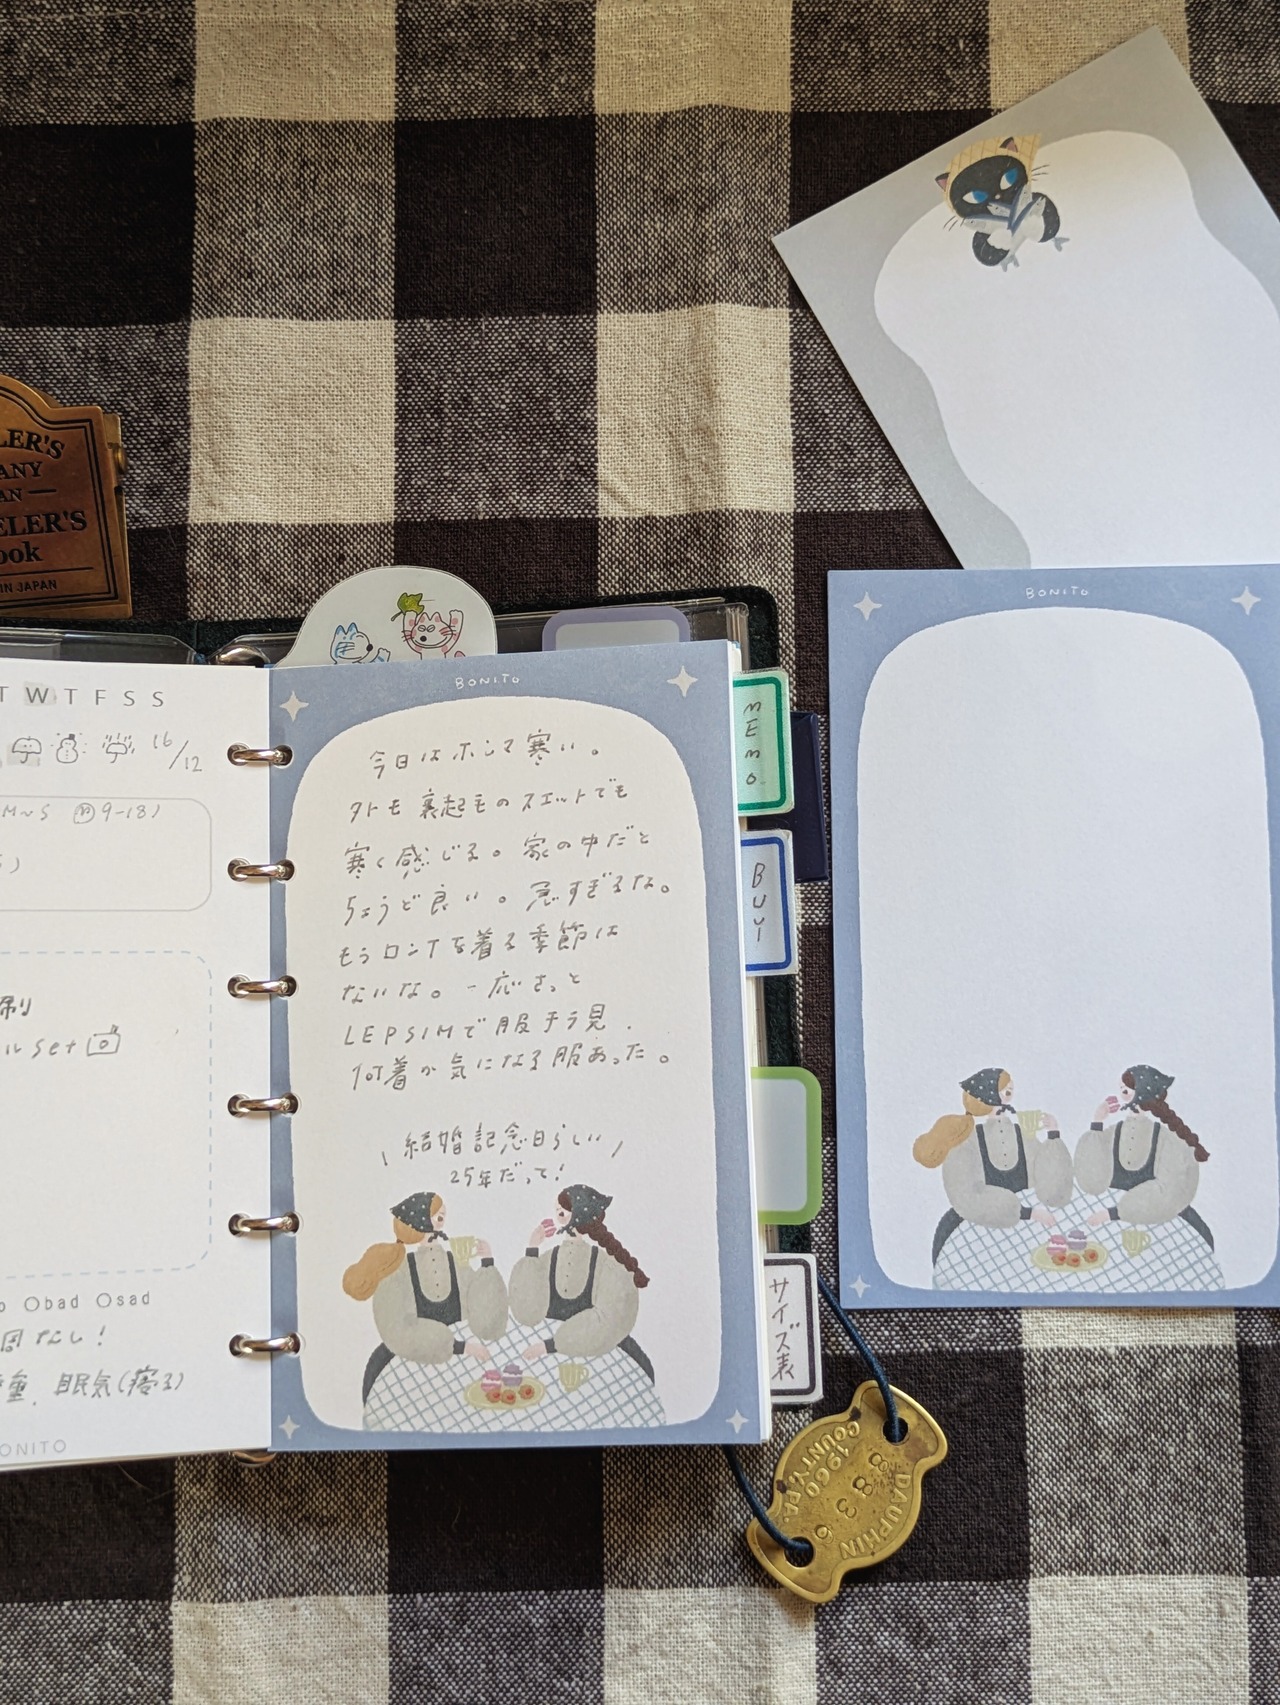 LER'S
ANY
AN
ELER'S
ook
IN JAPAN
T W T F S S
16/12
M~S 9-18)
刷
ルset
Obad Osad
因なし!
重、眠気(寝る)
ONITO
BONITO
今日はホンマ寒い。
外も裏起毛のスエットでも
寒く感じる。家の中だと
ちょうど良い。急すぎるな。
もうロンTを着る季節は
ないな。一応さっと
LEPSIMで服チラ見、
何着か気になる服あった。
\ 結婚記念日らしい /
25年だって!
MEMO
BUY
サイズ表
BONITO
DAUPHIN
COUNTY, PA.
1960
8836